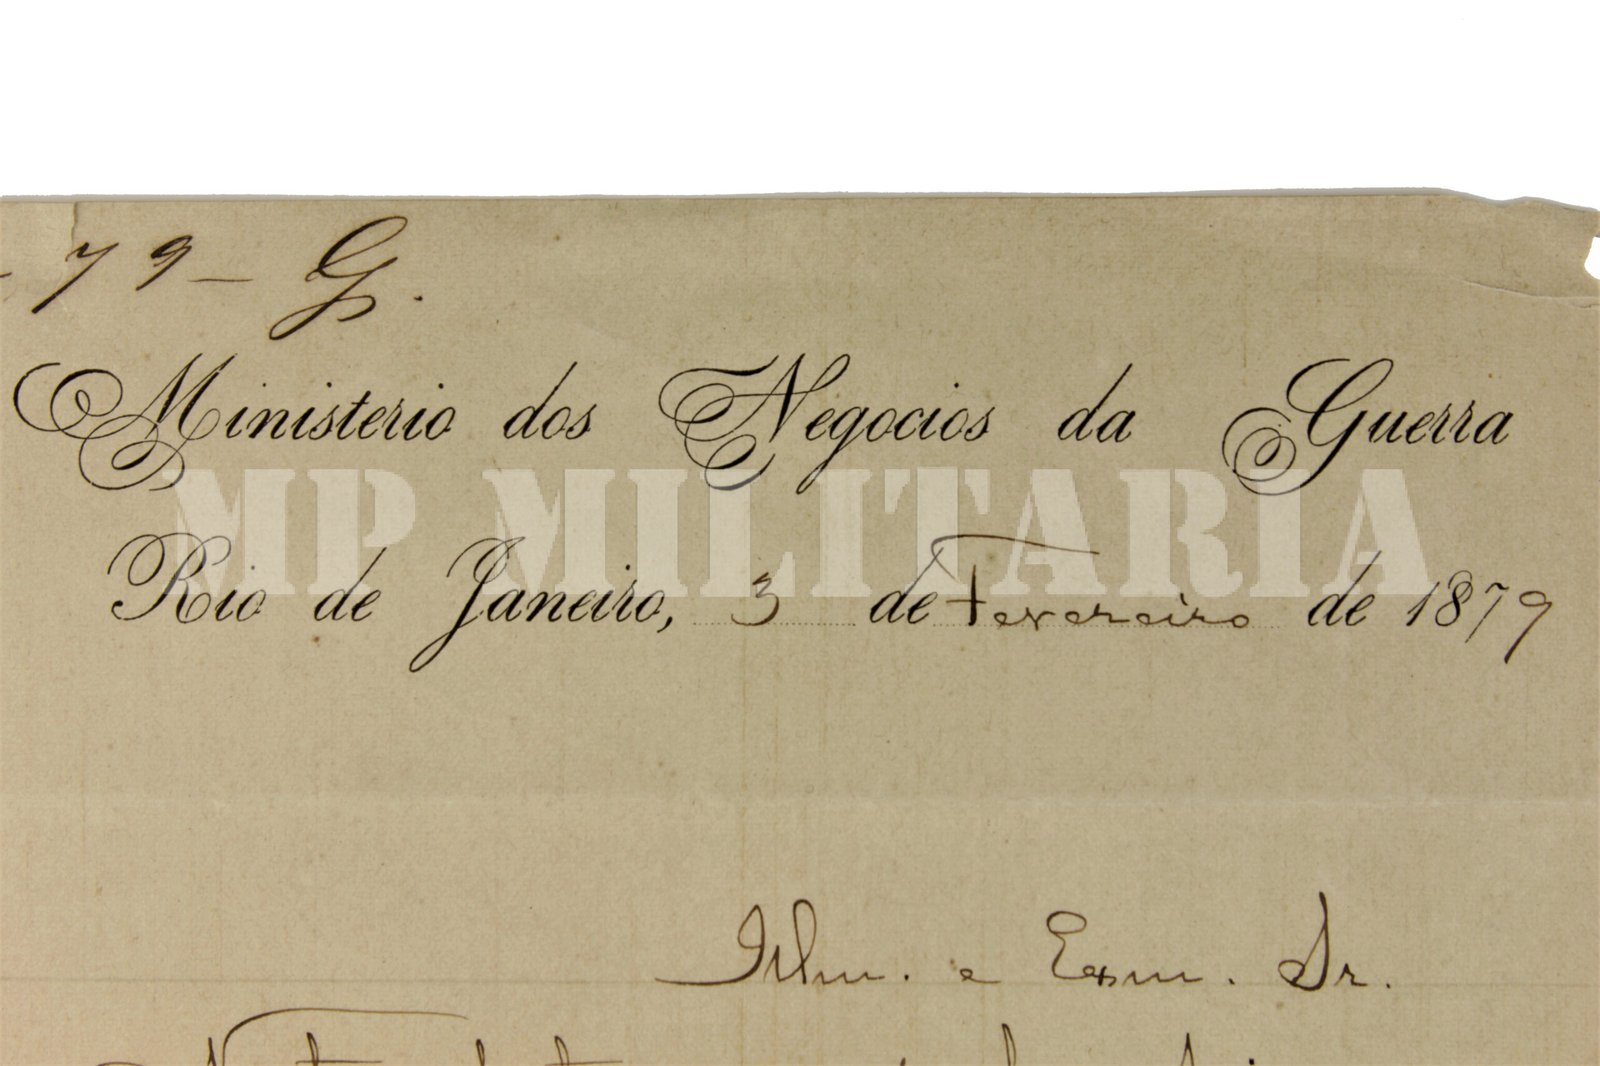 - 79 - G.
Ministerio dos Negocios da Guerra
MP MILITARIA
Rio de Janeiro, 3 de Fevereiro de 1879
Illm. e Exm. Sr.